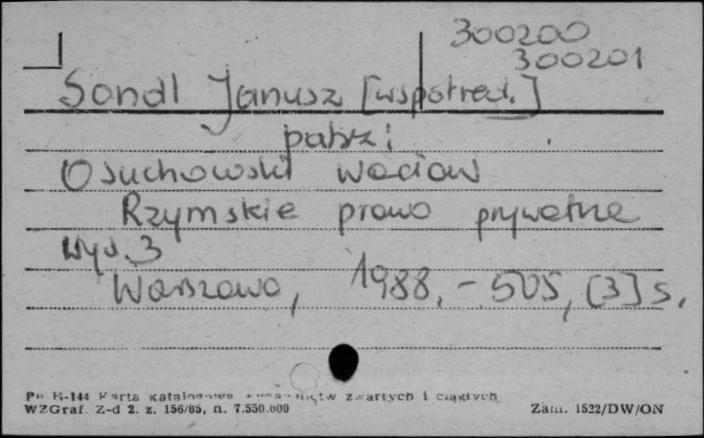 300200
300201
Sondl Janusz [współred.]
patrz:
Osuchowski Wacław
Rzymskie prawo prywatne
Wyd. 3
Warszawa, 1988. - 505, [3] s.
Pu-K-144 Karta katalogowa wydawnictw zwartych i ciągłych
WZGraf. Z-d 2. z. 156/85, n. 7.550.000 Zam. 1522/DW/ON